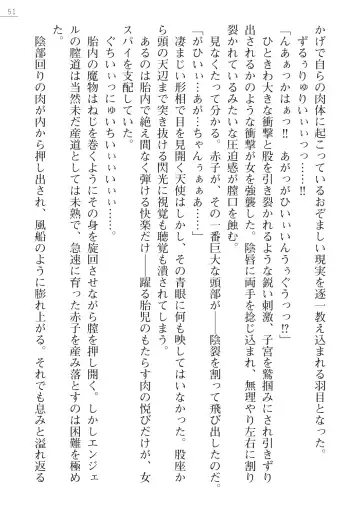 51
かげで自らの肉体に起こっているおぞましい現実を逐一教え込まれる羽目となった。
ずるぅりゅりいぃいっつ……‼
「んあぁっかはぁっ‼ あがっがひいぃいんうぅぐうっつ⁉」
ひときわ大きな衝撃と股を引き裂かれるような鋭い刺激、子宮を鷲掴みにされ引きずり
出されるかのような衝撃が女を強襲した。陰唇に両手を捻じ込まれ、無理やり左右に割り
裂かれているみたいな圧迫感が膣口を蝕む。
見なくたって分かる。赤子が、その一番巨大な頭部が――陰裂を割って飛び出したのだ。
「がひいぃ…あが…ちゃんぅぁぁあ……」
凄まじい形相で目を見開く天使はしかし、その青眼に何も映してはいなかった。股座か
ら頭の天辺まで突き抜ける閃光に視覚も聴覚も潰されてしまう。
あるのは胎内で絶え間なく弾ける快楽だけ――躍る胎児のもたらす肉の悦びだけが、女
スパイを支配していた。
ぐちいぃっにゅいちぃぃいいぃ……
胎内の魔物はねじを巻くようにその身を旋回させながら膣を押し開く。しかしエンジェ
ルの膣道は当然未だ産道としては未熟で、急速に育った赤子を産み落とすのは困難を極め
た。
陰部回りの肉が内から押し出され、風船のように膨れ上がる。それでも息みと溢れ返る